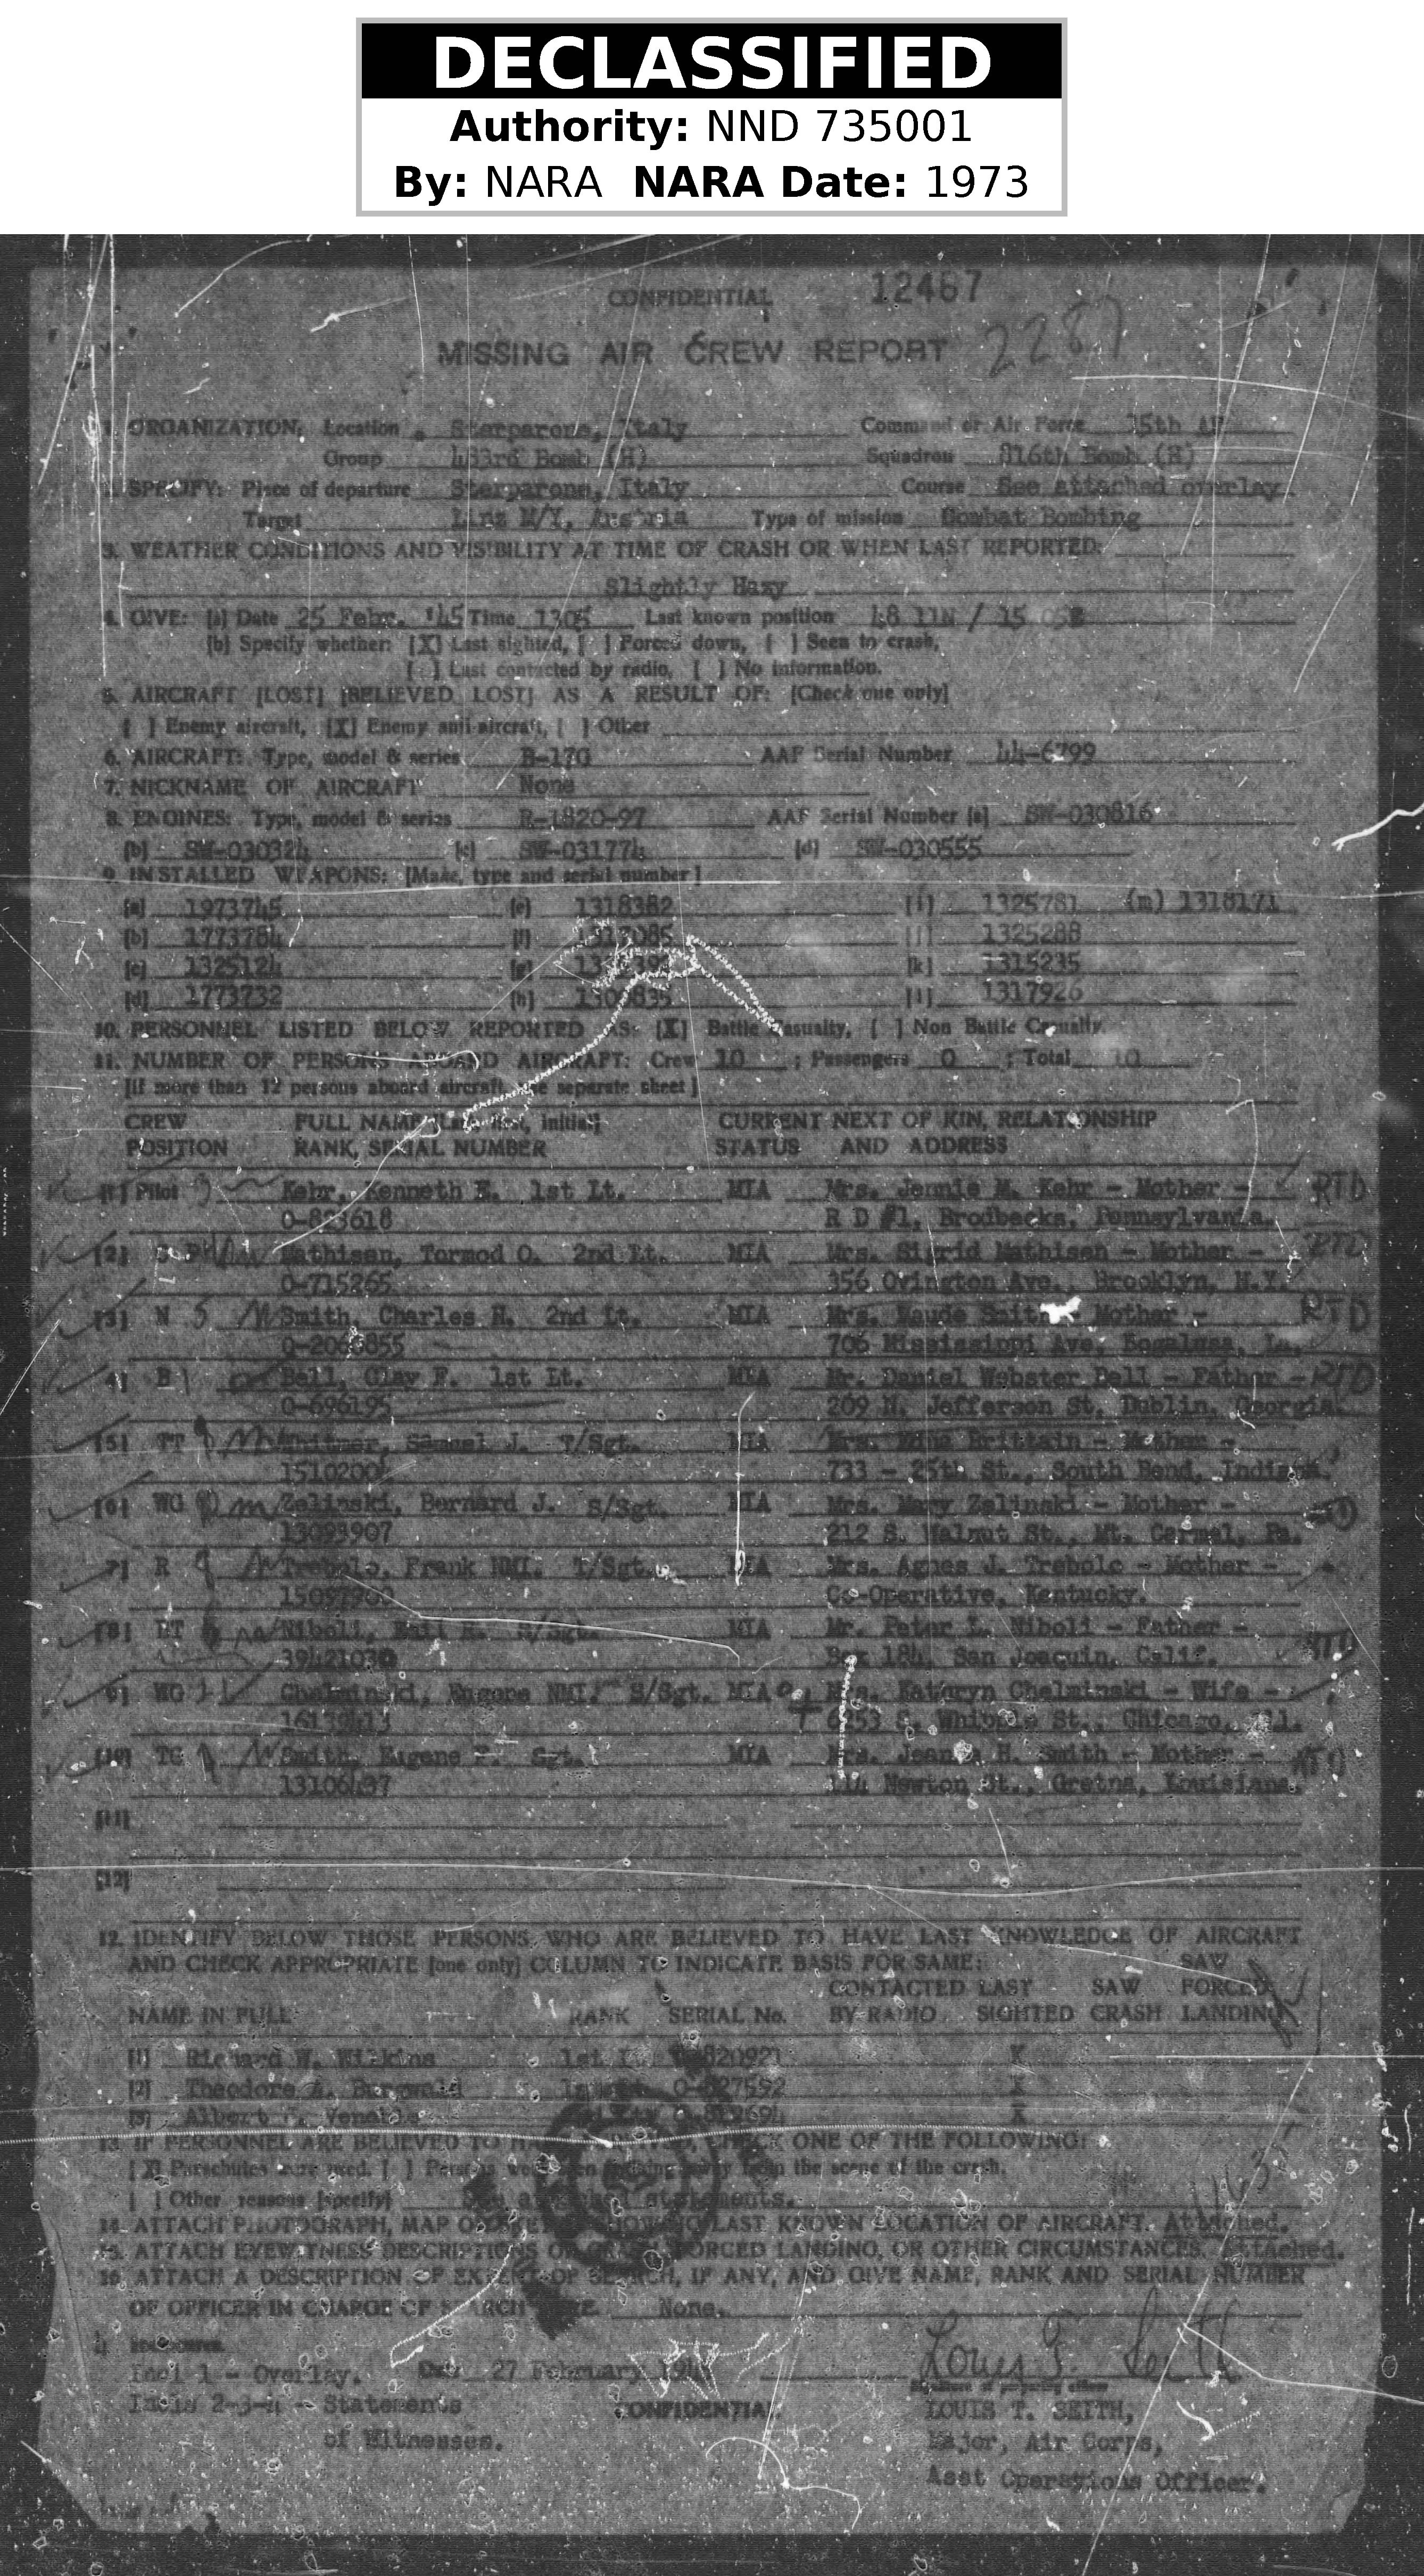 DECLASSIFIED
Authority: NND 735001
By: NARA NARA Date: 1973
CONFIDENTIAL 12467
MISSING AIR CREW REPORT 2287
1. ORGANIZATION: Location Sterparone, Italy Command or Air Force 15th AF
Group 483rd Bomb (H) Squadron 816th Bomb (H)
2. SPECIFY: Place of departure Sterparone, Italy Course See attached overlay
Target Linz M/Y, Austria Type of mission Combat Bombing
3. WEATHER CONDITIONS AND VISIBILITY AT TIME OF CRASH OR WHEN LAST REPORTED:
Slightly Hazy
4. GIVE: [a] Date 25 Febr. '45 Time 1305 Last known position 48 11N / 15 05E
[b] Specify whether: [X] Last sighted, [ ] Forced down, [ ] Seen to crash,
[ ] Last contacted by radio, [ ] No information.
5. AIRCRAFT [LOST] [BELIEVED LOST] AS A RESULT OF: [Check one only]
[ ] Enemy aircraft, [X] Enemy anti-aircraft, [ ] Other
6. AIRCRAFT: Type, model & series B-17G AAF Serial Number 44-6799
7. NICKNAME OF AIRCRAFT None
8. ENGINES: Type, model & series R-1820-97 AAF Serial Number [a] SW-030816
[b] SW-030324 [c] SW-031774 [d] SW-030555
9. INSTALLED WEAPONS: [Make, type and serial number]
[a] 1973745 [e] 1318382 [i] 1325781 (m) 1318171
[b] 1773784 [f] [j] 1325288
[c] 1325124 [g] [k] 1315235
[d] 1773732 [h] 1300835 [l] 1317926
10. PERSONNEL LISTED BELOW REPORTED AS: [X] Battle Casualty, [ ] Non Battle Casualty.
11. NUMBER OF PERSONS ABOARD AIRCRAFT: Crew 10 ; Passengers 0 ; Total 10
[If more than 12 persons aboard aircraft, use separate sheet]
CREW FULL NAME [Last first, initial] CURRENT NEXT OF KIN, RELATIONSHIP
POSITION RANK, SERIAL NUMBER STATUS AND ADDRESS
[1] Pilot Kehr, Kenneth E. 1st Lt. MIA Mrs. Jennie M. Kehr - Mother - RTD
O-823618 R D #1, Brodbecks, Pennsylvania.
[2] Mathisen, Tormod O. 2nd Lt. MIA Mrs. Sigrid Mathisen - Mother - RTD
O-715265 356 Ovington Ave., Brooklyn, N.Y.
[3] N Smith, Charles H. 2nd Lt. MIA Mrs. Maude Smith Mother - RTD
706 Mississippi Ave, Bogalusa, La.
[4] B Bell, Clay F. 1st Lt. MIA Mr. Daniel Webster Bell - Father - RTD
O-696195 209 N. Jefferson St, Dublin, Georgia.
[5] TT Whitmer, Samuel J. T/Sgt. MIA Mrs. Brittain - Mother -
733 - 25th St., South Bend, Indiana.
[6] WG Zelinski, Bernard J. S/Sgt. MIA Mrs. Mary Zelinski - Mother -
13093907 212 S. Walnut St., Mt. Carmel, Pa.
[7] R Trebolo, Frank NMI. T/Sgt. MIA Mrs. Agnes J. Trebolo - Mother -
Co-Operative, Kentucky.
[8] LT Niboli, Emil R. S/Sgt. MIA Mr. Peter L. Niboli - Father - RTD
39421030 Box 184, San Joaquin, Calif.
[9] WG Chelminski, Eugene NMI. S/Sgt. MIA Mrs. Kathryn Chelminski - Wife -
16139413 S. Whipple St., Chicago, Ill.
[10] TG Smith, Eugene Sgt. MIA Mrs. H. Smith - Mother - RTD
13106437 Newton St., Gretna, Louisiana.
[11]
[12]
12. IDENTIFY BELOW THOSE PERSONS WHO ARE BELIEVED TO HAVE LAST KNOWLEDGE OF AIRCRAFT
AND CHECK APPROPRIATE [one only] COLUMN TO INDICATE BASIS FOR SAME: SAW
CONTACTED LAST SAW FORCED
NAME IN FULL RANK SERIAL No. BY RADIO SIGHTED CRASH LANDING
[1] Richard W. Wilkins 1st Lt. O-820921 X
[2] Theodore A. O-827592 X
[3] Albert Venable X
13. IF PERSONNEL ARE BELIEVED TO HAVE CHECK ONE OF THE FOLLOWING:
[X] Parachutes were used. [ ] Persons were seen walking away from the scene of the crash.
[ ] Other reasons [specify] See attached statements.
14. ATTACH PHOTOGRAPH, MAP OR SKETCH, SHOWING LAST KNOWN LOCATION OF AIRCRAFT. Attached.
15. ATTACH EYEWITNESS DESCRIPTIONS OF CRASH, FORCED LANDING, OR OTHER CIRCUMSTANCES. Attached.
16. ATTACH A DESCRIPTION OF EXTENT OF SEARCH, IF ANY, AND GIVE NAME, RANK AND SERIAL NUMBER
OF OFFICER IN CHARGE OF SEARCH HERE None.
4 Inclosures.
Incl 1 - Overlay. Date 27 February 194 Louis T. Seith
Signature of preparing officer
Incls 2-3-4 - Statements CONFIDENTIAL LOUIS T. SEITH,
of Witnesses. Major, Air Corps,
Asst Operations Officer.